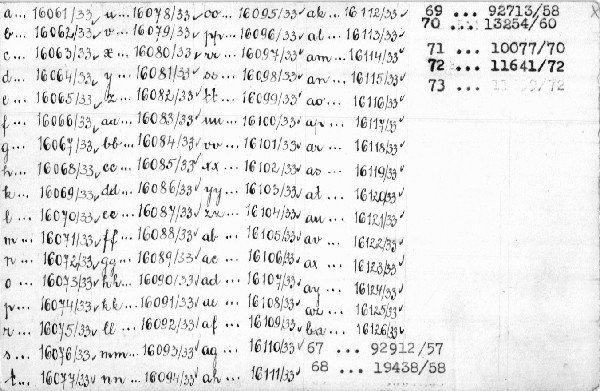 a... 16061/33✓ u... 16078/33✓ oo... 16095/33✓ ak... 16112/33✓ 69 ... 92713/58 X
b... 16062/33✓ v... 16079/33✓ pp... 16096/33✓ al... 16113/33✓ 70 ... 13254/60
c... 16063/33✓ x... 16080/33✓ rr... 16097/33✓ am... 16114/33✓ 71 ... 10077/70
d... 16064/33✓ y... 16081/33✓ ss... 16098/33✓ an... 16115/33✓ 72 ... 11641/72
e... 16065/33✓ z... 16082/33✓ tt... 16099/33✓ ao... 16116/33✓ 73 ...
f... 16066/33✓ aa... 16083/33✓ uu... 16100/33✓ ap... 16117/33✓
g... 16067/33✓ bb... 16084/33✓ vv... 16101/33✓ ar... 16118/33✓
h... 16068/33✓ cc... 16085/33✓ xx... 16102/33✓ as... 16119/33✓
k... 16069/33✓ dd... 16086/33✓ yy... 16103/33✓ at... 16120/33✓
l... 16070/33✓ ee... 16087/33✓ zz... 16104/33✓ au... 16121/33✓
m... 16071/33✓ ff... 16088/33✓ ab... 16105/33✓ av... 16122/33✓
n... 16072/33✓ gg... 16089/33✓ ac... 16106/33✓ ax... 16123/33✓
o... 16073/33✓ hh... 16090/33✓ ad... 16107/33✓ ay... 16124/33✓
p... 16074/33✓ kk... 16091/33✓ ae... 16108/33✓ az... 16125/33✓
r... 16075/33✓ ll... 16092/33✓ af... 16109/33✓ ba... 16126/33✓
s... 16076/33✓ mm... 16093/33✓ ag... 16110/33✓ 67 ... 92912/57
t... 16077/33✓ nn... 16094/33✓ ah... 16111/33✓ 68 ... 19438/58